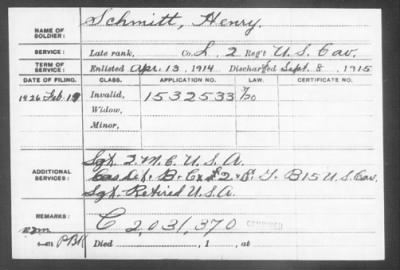 NAME OF SOLDIER: Schmitt, Henry.
SERVICE: Late rank, Co. L, 2 Reg't U.S. Cav.
TERM OF SERVICE: Enlisted Apr. 13, 1914 Discharged Sept. 8, 1915
DATE OF FILING. CLASS. APPLICATION NO. LAW. CERTIFICATE NO.
1926 Feb. 19 Invalid, 1532533
Widow,
Minor,
ADDITIONAL SERVICES: Sgt. Q.M.C. U.S.A.
B 15 U.S. Cav.
Sgt. Retired U.S.A.
REMARKS: C 2,031,370
Died , 1 , at